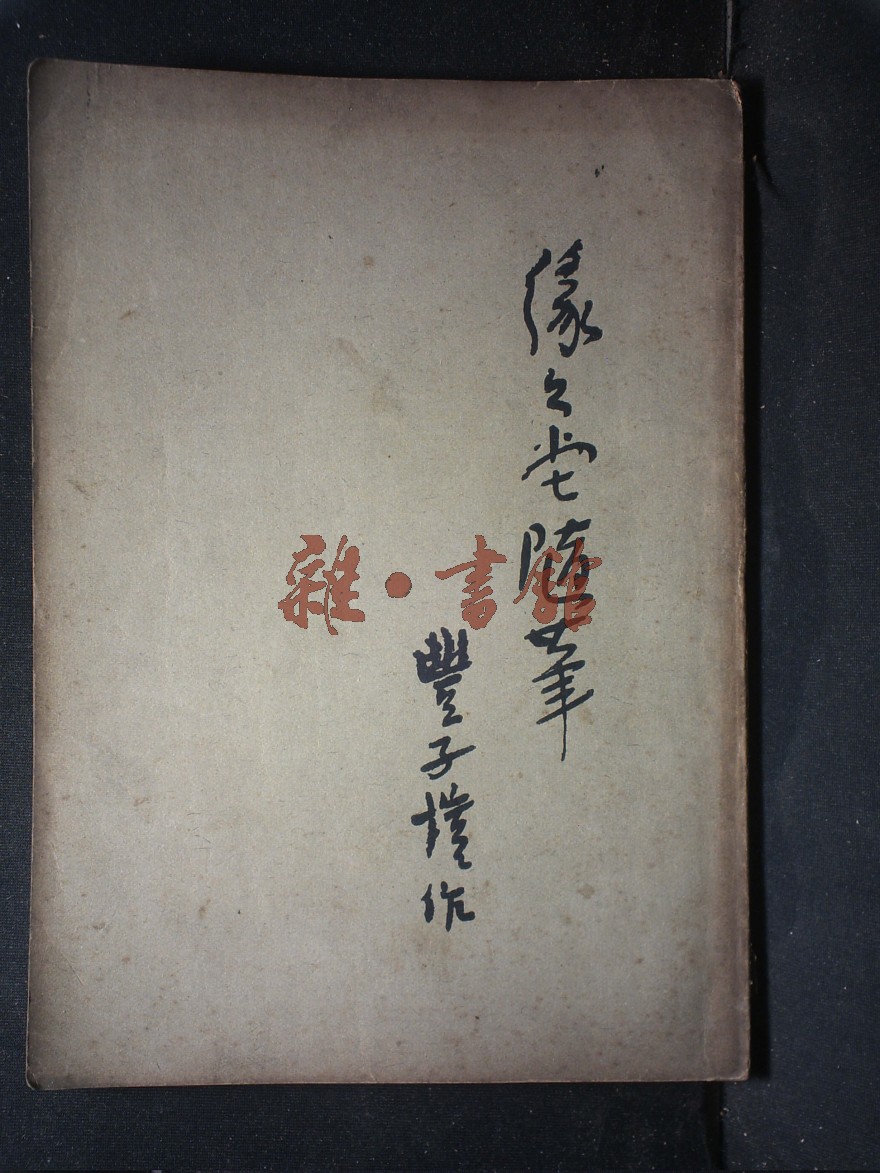 缘缘堂隨筆
豐子愷作
雜·書館